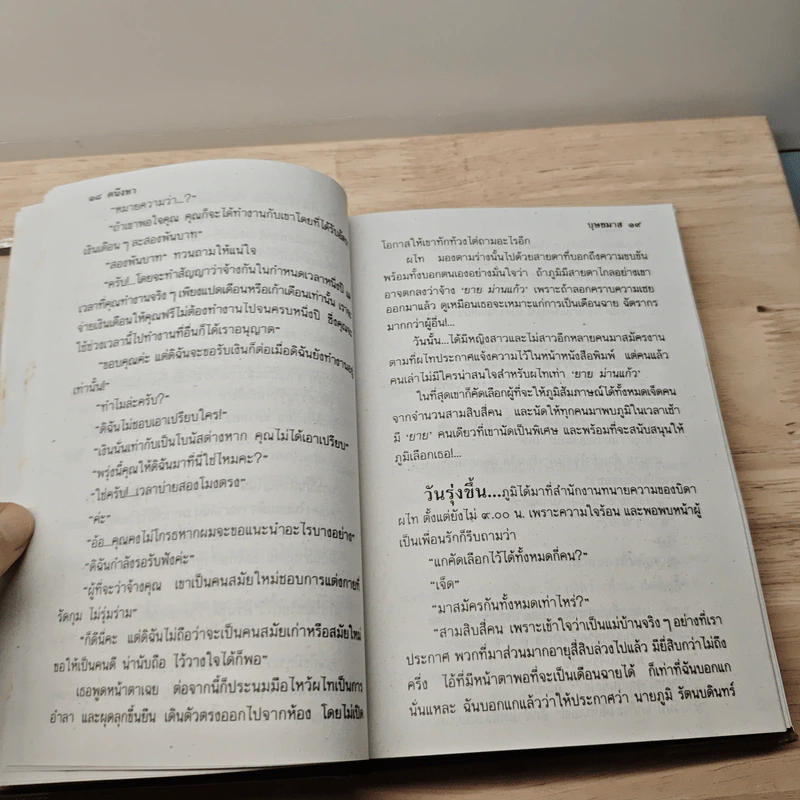 ๑๘ คนึงหา
"หมายความว่า...?"
"ถ้าเขาพอใจคุณ คุณก็จะได้ทำงานกับเขาโดยที่ได้รับ
เงินเดือน ๆ ละสองพันบาท"
"สองพันบาท" ทวนถามให้แน่ใจ
"ครับ!...โดยจะทำสัญญาว่าจ้างกันในกำหนดเวลาหนึ่งปี
เวลาที่คุณทำงานจริง ๆ เพียงแปดเดือนหรือเก้าเดือนเท่านั้น
จ่ายเงินเดือนให้คุณฟรีไม่ต้องทำงานไปจนครบหนึ่งปี ซึ่งคุณจะ
ใช้ช่วงเวลานี้ไปทำงานที่อื่นก็ได้เราอนุญาต"
"ขอบคุณค่ะ แต่ดิฉันจะขอรับเงินก็ต่อเมื่อดิฉันยังทำงานอยู่
เท่านั้น!"
"ทำไมล่ะครับ?"
"ดิฉันไม่ชอบเอาเปรียบใคร!"
"เงินนั่นเท่ากับเป็นโบนัสต่างหาก คุณไม่ได้เอาเปรียบ"
"พรุ่งนี้คุณให้ดิฉันมาที่นี่ใช่ไหมคะ?"
"ใช่ครับ!...เวลาบ่ายสองโมงตรง"
"ค่ะ"
"อ้อ...คุณคงไม่โกรธหากผมจะขอแนะนำอะไรบางอย่าง"
"ดิฉันกำลังรอรับฟังค่ะ"
"ผู้ที่จะว่าจ้างคุณ เขาเป็นคนสมัยใหม่ชอบการแต่งกายที่
รัดกุม ไม่รุ่มร่าม"
"ก็ดีนี่คะ แต่ดิฉันไม่ถือว่าจะเป็นคนสมัยเก่าหรือสมัยใหม่
ขอให้เป็นคนดี น่านับถือ ไว้วางใจได้ก็พอ"
เธอพูดหน้าตาเฉย ต่อจากนี้ก็ประนมมือไหว้ผไทเป็นการ
อำลา และผุดลุกขึ้นยืน เดินตัวตรงออกไปจากห้อง โดยไม่เปิด
บุษยมาส ๑๙
โอกาสให้เขาทักท้วงไต่ถามอะไรอีก
ผไท มองตามร่างนั้นไปด้วยสายตาที่บอกถึงความขบขัน
พร้อมทั้งบอกตนเองอย่างมั่นใจว่า ถ้าภูมิมีสายตาไกลอย่างเขา
อาจตกลงว่าจ้าง 'ยาย ม่านแก้ว' เพราะถ้าลอกคราบความเชย
ออกมาแล้ว ดูเหมือนเธอจะเหมาะแก่การเป็นเดือนฉาย ฉัตราภร
มากกว่าผู้อื่น!...
วันนั้น...ได้มีหญิงสาวและไม่สาวอีกหลายคนมาสมัครงาน
ตามที่ผไทประกาศแจ้งความไว้ในหน้าหนังสือพิมพ์ แต่คนแล้ว
คนเล่าไม่มีใครน่าสนใจสำหรับผไทเท่า 'ยาย ม่านแก้ว'
ในที่สุดเขาก็คัดเลือกผู้ที่จะให้ภูมิสัมภาษณ์ได้ทั้งหมดเจ็ดคน
จากจำนวนสามสิบสี่คน และนัดให้ทุกคนมาพบภูมิในเวลาเช้า
มี 'ยาย' คนเดียวที่เขานัดเป็นพิเศษ และพร้อมที่จะสนับสนุนให้
ภูมิเลือกเธอ!...
วันรุ่งขึ้น...ภูมิได้มาที่สำนักงานทนายความของบิดา
ผไท ตั้งแต่ยังไม่ ๙.๐๐ น. เพราะความใจร้อน และพอพบหน้าผู้
เป็นเพื่อนรักก็รีบถามว่า
"แกคัดเลือกไว้ได้ทั้งหมดกี่คน?"
"เจ็ด"
"มาสมัครกันทั้งหมดเท่าไหร่?"
"สามสิบสี่คน เพราะเข้าใจว่าเป็นแม่บ้านจริง ๆ อย่างที่เรา
ประกาศ พวกที่มาส่วนมากอายุสี่สิบล่วงไปแล้ว มียี่สิบกว่าไม่ถึง
ครึ่ง ไอ้ที่มีหน้าตาพอที่จะเป็นเดือนฉายได้ ก็เท่าที่ฉันบอกแก
นั่นแหละ ฉันบอกแกแล้วว่าให้ประกาศว่า นายภูมิ รัตนบดินทร์